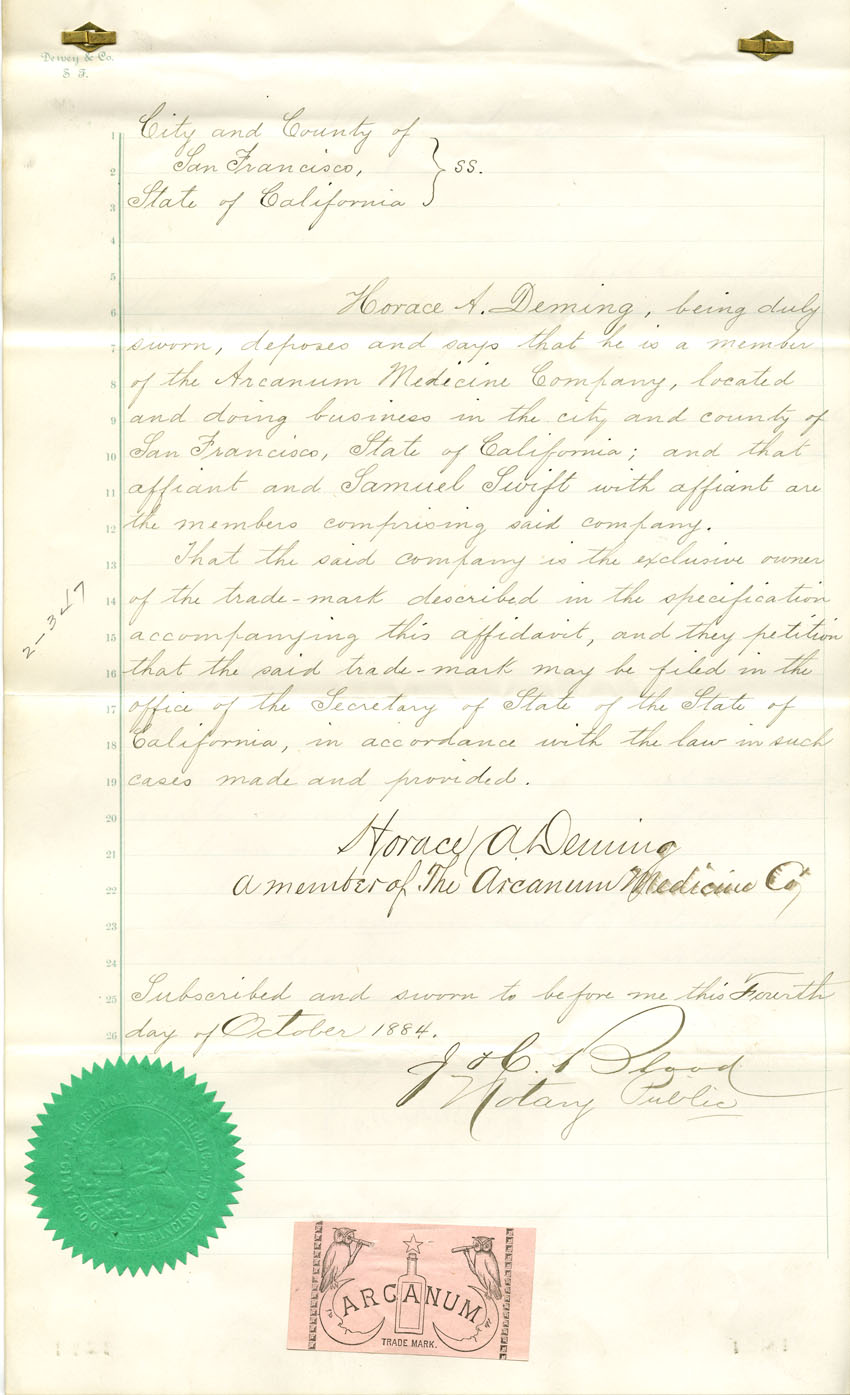 Dewey & Co.
S. F.
1 City and County of
2 San Francisco, } ss.
3 State of California
4
5
6 Horace A. Deming, being duly
7 sworn, deposes and says that he is a member
8 of the Arcanum Medicine Company, located
9 and doing business in the city and county of
10 San Francisco, State of California; and that
11 affiant and Samuel Swift with affiant are
12 the members comprising said company.
13 That the said company is the exclusive owner
14 of the trade-mark described in the specification
15 accompanying this affidavit, and they petition
16 that the said trade-mark may be filed in the
17 office of the Secretary of State of the State of
18 California, in accordance with the law in such
19 cases made and provided.
20
21 Horace A Deming
22 a member of The Arcanum Medicine Co
23
24
25 Subscribed and sworn to before me this Fourth
26 day of October 1884.
J. H. Blood
Notary Public
2-347
ARCANUM
TRADE MARK.